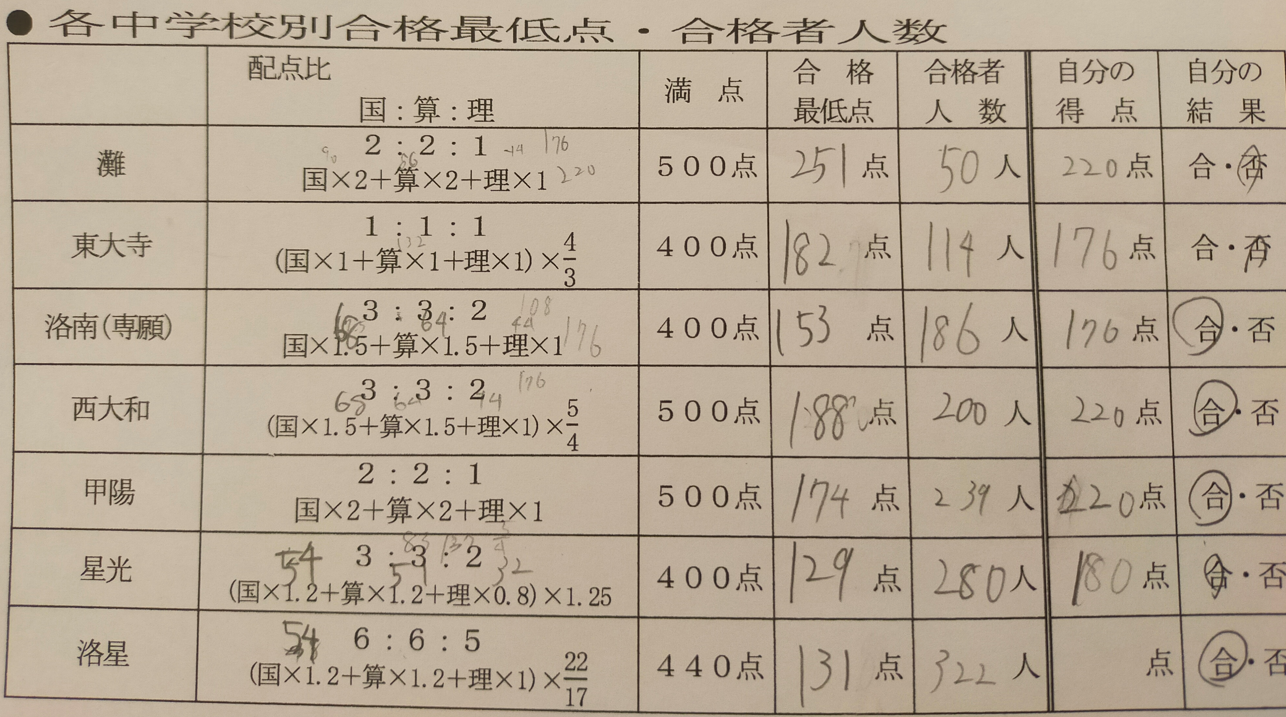 ●各中学校別合格最低点・合格者人数
配点比 国：算：理 満点 合格最低点 合格者人数 自分の得点 自分の結果
灘 2：2：1 176
国×2＋算×2＋理×1 220 500点 251点 50人 220点 合・否
東大寺 1：1：1
132
(国×1＋算×1＋理×1)×4/3 400点 182点 114人 176点 合・否
洛南(専願) 3：3：2 108
68 64 44
国×1.5＋算×1.5＋理×1 176 400点 153点 186人 176点 合・否
西大和 3：3：2 176
68 64 44
(国×1.5＋算×1.5＋理×1)×5/4 500点 188点 200人 220点 合・否
甲陽 2：2：1
国×2＋算×2＋理×1 500点 174点 239人 220点 合・否
星光 54 3：3：2
32
(国×1.2＋算×1.2＋理×0.8)×1.25 400点 129点 280人 180点 合・否
洛星 54 6：6：5
(国×1.2＋算×1.2＋理×1)×22/17 440点 131点 322人 点 合・否